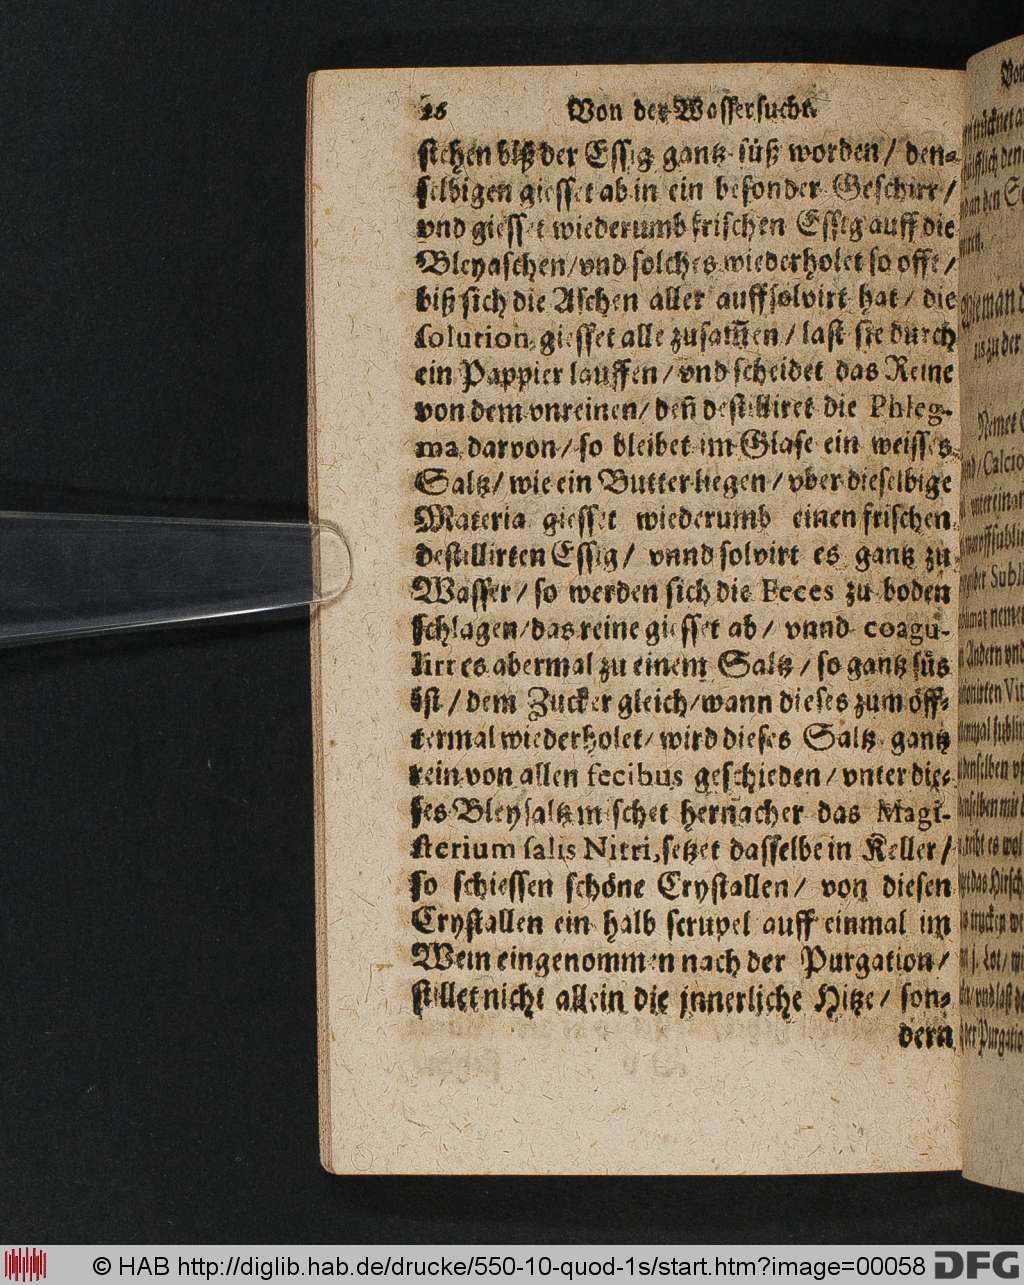 26 Von der Wassersucht.
stehen biß der Essig gantz süß worden/ den-
selbigen giesset ab in ein besonder Geschirr/
vnd giesset wiederumb frischen Essig auff die
Bleyaschen/ vnd solches wiederholet so offt/
biß sich die Aschen aller auffsolvirt hat/ die
solution giesset alle zusam̃en/ last sie durch
ein Pappier lauffen/ vnd scheidet das Reine
von dem vnreinen/ deñ destilliret die Phleg-
ma darvon/ so bleibet im Glase ein weisses
Saltz/ wie ein Butter liegen/ vber dieselbige
Materia giesset wiederumb einen frischen
destillirten Essig/ vnnd solvirt es gantz zu
Wasser/ so werden sich die Feces zu boden
schlagen/ das reine giesset ab/ vnnd coagu-
lirt es abermal zu einem Saltz/ so gantz süs
ist/ dem Zucker gleich/ wann dieses zum öff-
termal wiederholet/ wird dieses Saltz gantz
rein von allen fecibus geschieden/ vnter die-
ses Bleysaltz mischet hernacher das Magi-
sterium salis Nitri, setzet dasselbe in Keller/
so schiessen schöne Crystallen/ von diesen
Crystallen ein halb scrupel auff einmal im
Wein eingenommen nach der Purgation/
stillet nicht allein die jnnerliche Hitze/ son-
dern
© HAB http://diglib.hab.de/drucke/550-10-quod-1s/start.htm?image=00058
DFG